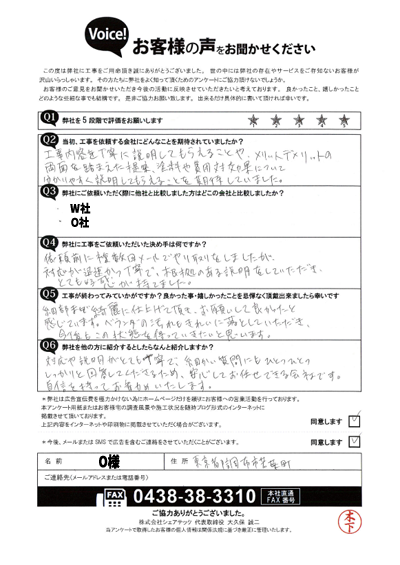 Voice!
お客様の声をお聞かせください
この度は弊社に工事をご用命頂き誠にありがとうございました。世の中には弊社の存在やサービスをご存知ないお客様が
沢山いらっしゃいます。その方たちに弊社をよく知って頂くためのアンケートにご協力頂けないでしょうか。
お客様のご意見をお聞かせいただき今後の活動に反映させていただきたいと考えております。良かったこと、嬉しかったこと
どのような些細な事でも結構です。是非ご協力お願い致します。出来るだけ具体的に書いて頂ければ幸いです。
Q1 弊社を5段階で評価をお願いします ★ ★ ★ ★ ★
Q2 当初、工事を依頼する会社にどんなことを期待されていましたか?
工事内容を丁寧に説明してもらえることや、メリットデメリットの
両面を踏まえた提案、塗料や費用対効果について
分かりやすく説明してもらえることを期待していました。
Q3 弊社にご依頼いただく際に他社と比較しました方はどこの会社と比較しましたか?
・W社
・O社
Q4 弊社に工事をご依頼いただいた決め手は何ですか?
依頼前に複数回メールでやり取りをしましたが、
対応が迅速かつ丁寧で、根拠のある説明をしていただき、
とても好感が持てました。
Q5 工事が終わってみていかがですか?良かった事・嬉しかったことを忌憚なく頂戴出来ましたら幸いです
細部まで綺麗に仕上げて頂き、お願いして良かったと
感じています。ベランダの汚れもきれいに落としていただき、
今後もこの状態を保っていきたいと思います。
Q6 弊社を他の方に紹介するとしたらなんと紹介しますか?
対応や説明がとても丁寧で、細かい質問にもひとつひとつ
しっかりと回答してくださるため、安心してお任せできる会社です。
自信を持ってお勧めいたします。
※弊社は広告宣伝費を極力かけない為にホームページだけを頼りにお客様への営業活動を行っております。
本アンケート用紙またはお客様宅の調査風景や施工状況を随時ブログ形式のインターネットに
掲載させて頂いております。
上記内容をインターネットや印刷物に掲載させていただく場合がございます。 同意します ✓
※今後、メールまたは SMS で広告を含むご連絡をさせていただくことがございます。 同意します ✓
名前 O様 住所 東京都調布市
ご連絡先(メールアドレスまたは電話番号)
FAX 0438-38-3310 本社直通 FAX番号
ご協力ありがとうございました。
株式会社シェアテック 代表取締役 大久保 誠二
当アンケートで取得したお客様の個人情報は関係法規に基づき厳正に管理いたします。
木下